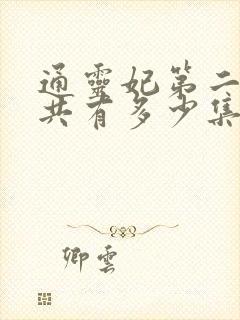 通靈妃第二
共有多少集
卿雲